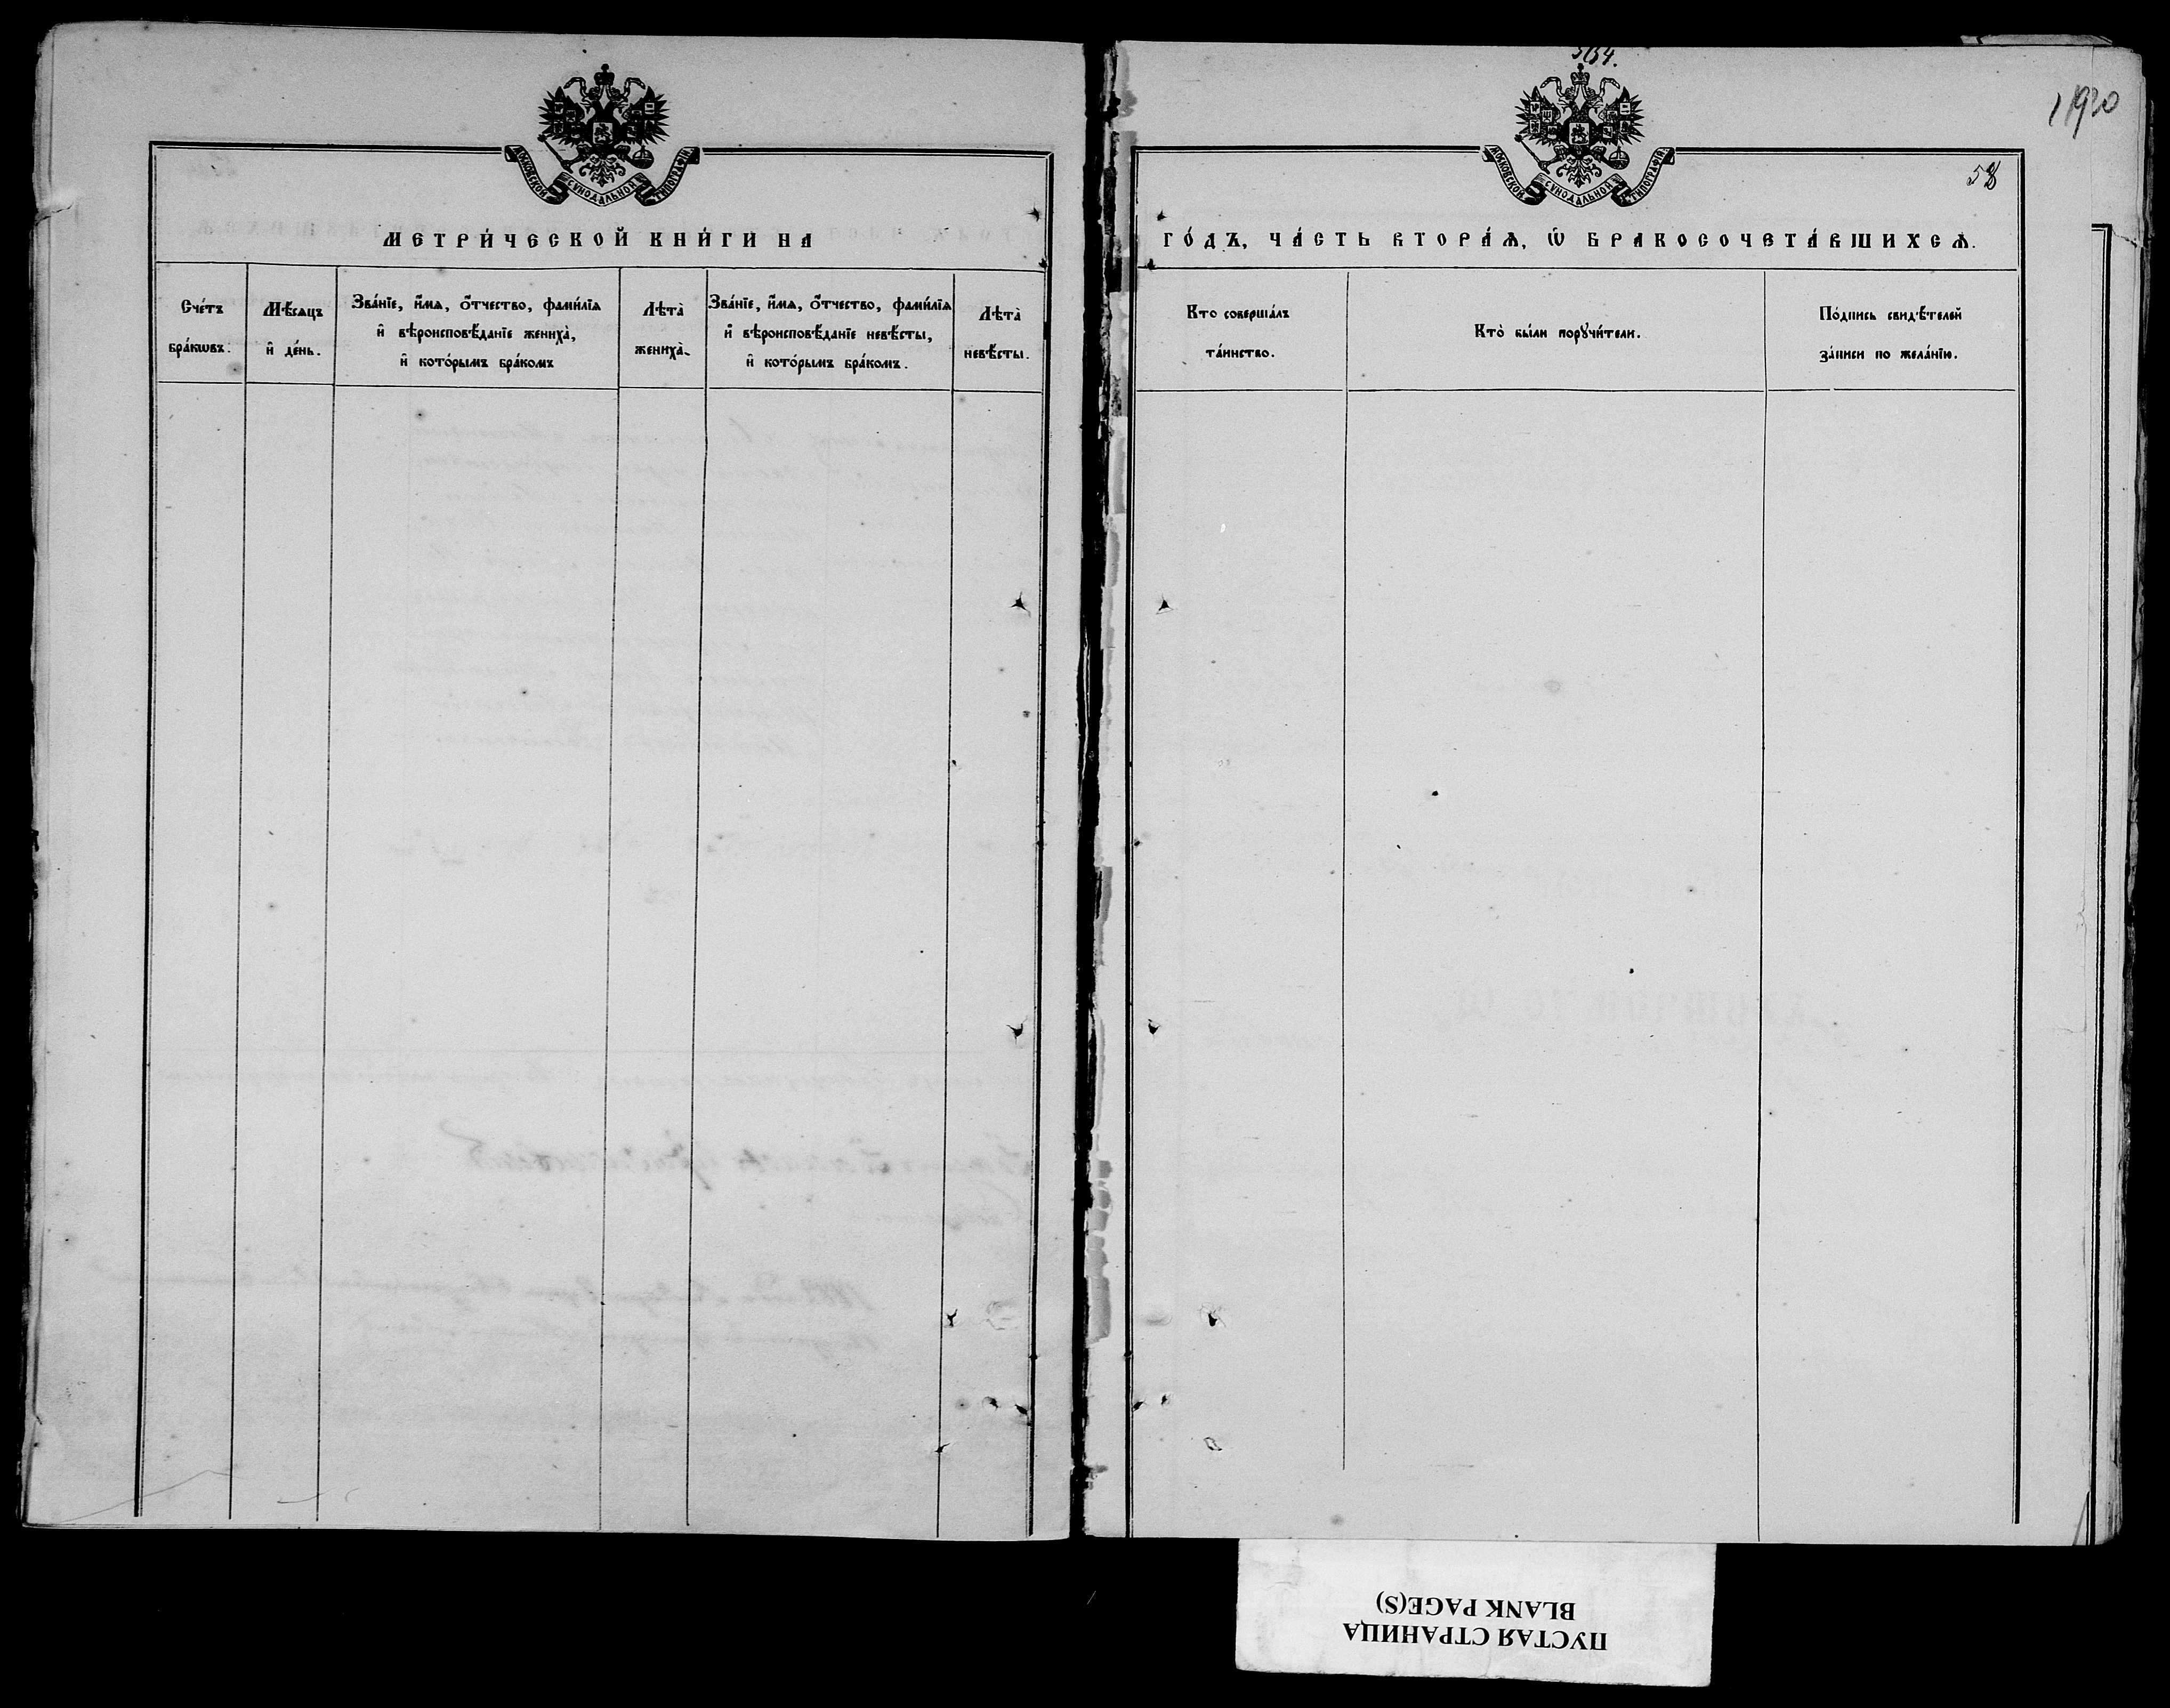 МОСКОВСКОЙ СѴНОДАЛЬНОЙ ТИПОГРАФІИ.
МЕТРИ́ЧЕСКОЙ КНИ́ГИ НА
Сче́тъ
бра́кѡвъ.
Мѣ́сяцъ
и҆ де́нь.
Зва́нїе, и҆́мѧ, ѻ҆́тчество, фами́лїѧ
и҆ вѣроисповѣ́данїе жениха̀,
и҆ кото́рымъ бра́комъ
Лѣта̀
жениха̀.
Зва́нїе, и҆́мѧ, ѻ҆́тчество, фами́лїѧ
и҆ вѣроисповѣ́данїе невѣ́сты,
и҆ кото́рымъ бра́комъ.
Лѣта̀
невѣ́сты.
58
МОСКОВСКОЙ СѴНОДАЛЬНОЙ ТИПОГРАФІИ.
ГО́ДЪ, ЧА́СТЬ ВТОРА́Ѧ, Ѡ҆ БРАКОСОЧЕТА́ВШИХСѦ.
Кто соверша́лъ
та́инство.
Кто̀ бы́ли порꙋчи́тели.
По́дпись свидѣ́телей
за́писи по жела́нїю.
ПУСТАЯ СТРАНИЦА
BLANK PAGE(S)